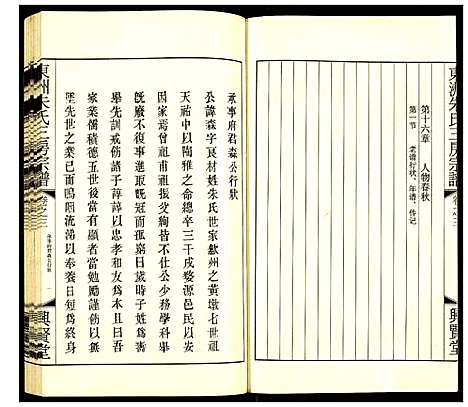 東洲朱氏三房宗譜
卷之三
興賢堂
第十六章 人物春秋
第一节 老谱行状、年谱、传记
承事府君森公行狀
公諱森字良材姓朱氏世家歙州之黃墩七世祖
天祐中以陶雅之命總卒三千戍婺源邑民以安
因家焉曾祖甫祖振父絢皆不仕公少務學科舉
既廢不復事進取既冠而孤窮日歲時子姓為壽
舉先訓戒飭諄諄以忠孝和友為本且曰吾
家業儒積德五世後當有顯者當勉勵謹飭以無
墜先世之業已而嗚咽流涕以奉養日短為終身
東洲朱氏三房宗譜
卷之三
承事府君森公行狀
一
興賢堂